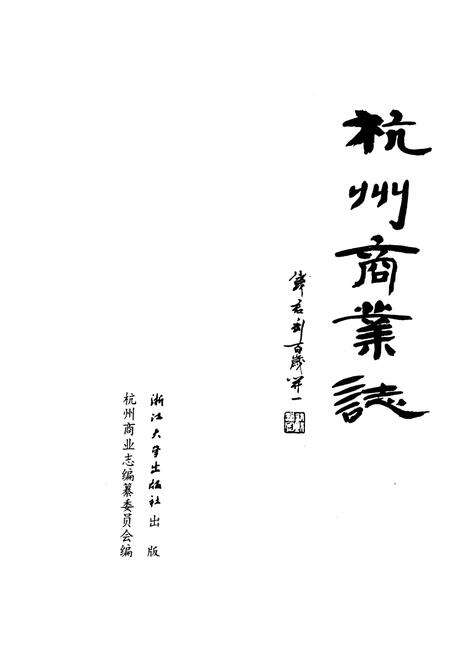 杭州商業誌
百歲開一
浙江大学出版社出版
杭州商业志编纂委员会编